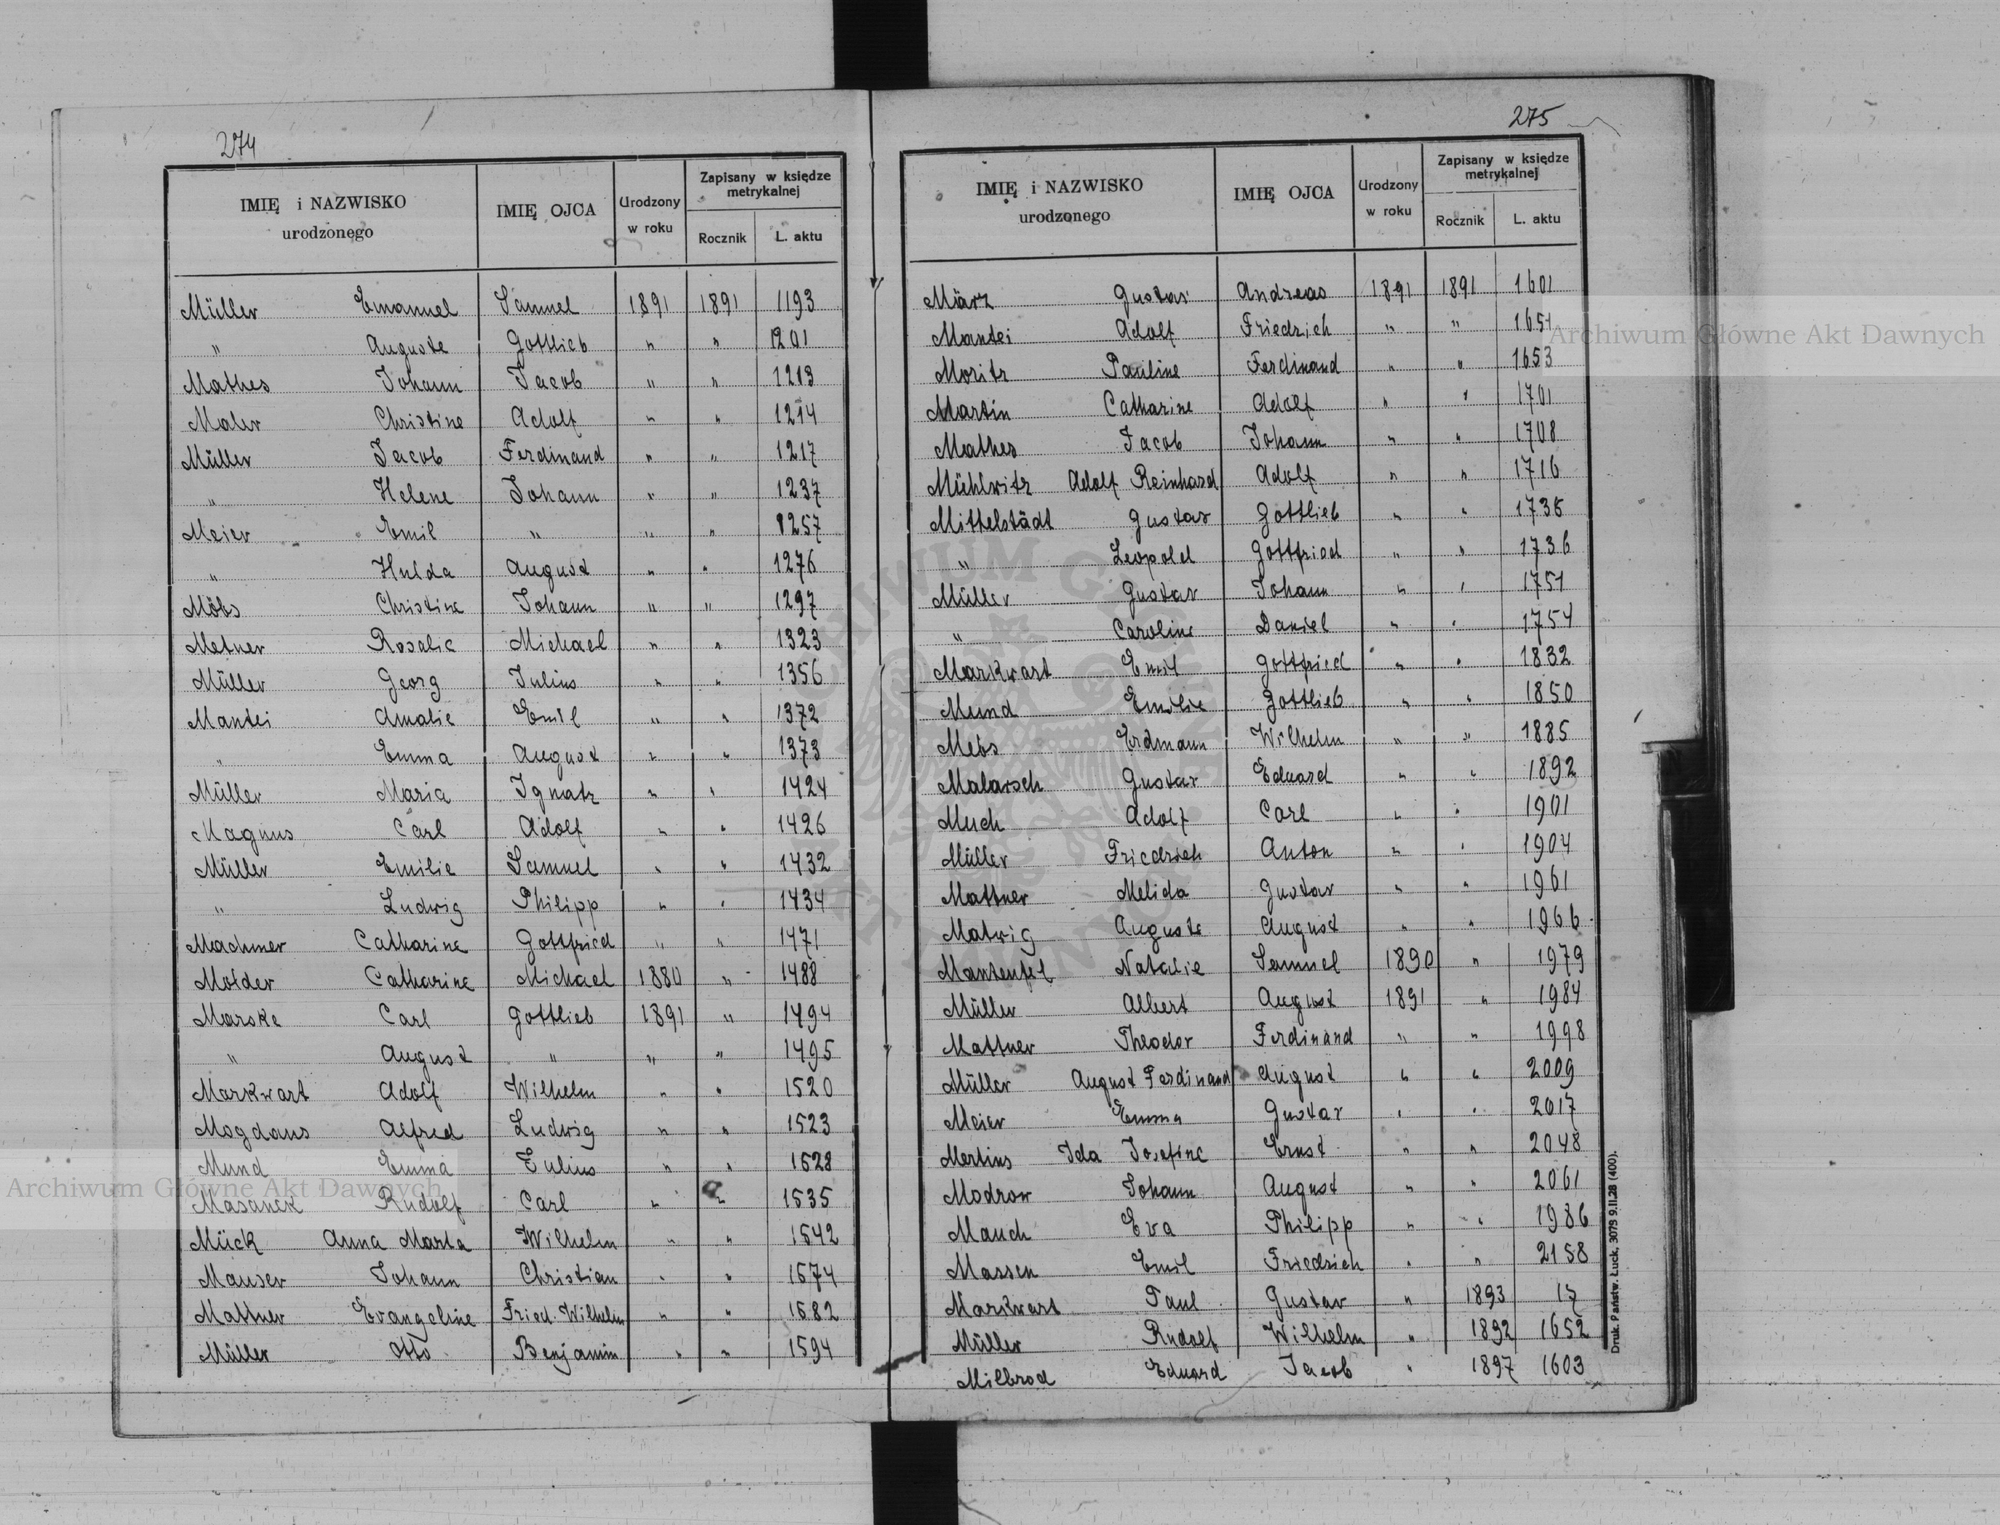 274
IMIĘ i NAZWISKO urodzonego IMIĘ OJCA Urodzony w roku Zapisany w księdze metrykalnej Rocznik L. aktu
Müller Emanuel Samuel 1891 1891 1193
" Auguste Gottlieb " " 1201
Mathes Johann Jacob " " 1213
Maler Christine Adolf " " 1214
Müller Jacob Ferdinand " " 1217
" Helene Johann " " 1237
Meier Emil " " " 1257
" Hulda August " " 1276
Möbs Christine Johann " " 1297
Metner Rosalie Michael " " 1323
Müller Georg Julius " " 1356
Mantei Amalie Emil " " 1372
" Emma August " " 1373
Müller Maria Ignatz " " 1424
Magnus Carl Adolf " " 1426
Müller Emilie Samuel " " 1432
" Ludwig Philipp " " 1434
Machmer Catharine Gottfried " " 1471
Molder Catharine Michael 1880 " 1488
Marske Carl Gottlieb 1891 " 1494
" August " " " 1495
Markwart Adolf Wilhelm " " 1520
Mogdans Alfred Ludwig " " 1523
Mund Emma Julius " " 1528
Masanek Rudolf Carl " " 1535
Mück Anna Marta Wilhelm " " 1542
Mauser Johann Christian " " 1574
Mattner Evangeline Fried. Wilhelm " " 1582
Müller Otto Benjamin " " 1594
275
IMIĘ i NAZWISKO urodzonego IMIĘ OJCA Urodzony w roku Zapisany w księdze metrykalnej Rocznik L. aktu
März Gustav Andreas 1891 1891 1601
Mantei Adolf Friedrich " " 1651
Moritz Pauline Ferdinand " " 1653
Martin Catharine Adolf " " 1701
Mathes Jacob Johann " " 1708
Mühlwitz Adolf Reinhard Adolf " " 1716
Mittelstädt Gustav Gottlieb " " 1735
" Leopold Gottfried " " 1736
Müller Gustav Johann " " 1751
" Caroline Daniel " " 1754
Markwart Emil Gottfried " " 1832
Mund Emilie Gottlieb " " 1850
Mebs Erdmann Wilhelm " " 1885
Malarsch Gustav Eduard " " 1892
Much Adolf Carl " " 1901
Müller Friedrich Anton " " 1904
Mattner Melida Gustav " " 1961
Matwig Auguste August " " 1966
Manteufel Natalie Samuel 1890 " 1979
Müller Albert August 1891 " 1984
Mattner Theodor Ferdinand " " 1998
Müller August Ferdinand August " " 2009
Meier Emma Gustav " " 2017
Mertins Ida Josefine Ernst " " 2048
Modrow Johann August " " 2061
Mauch Eva Philipp " " 1986
Massen Emil Friedrich " " 2158
Markwart Paul Gustav " 1893 17
Müller Rudolf Wilhelm " 1892 1652
Milbrod Eduard Jacob " 1897 1603
Druk. Państw. Łuck. 3079 9.II.28 (400).
Archiwum Główne Akt Dawnych
Archiwum Główne Akt Dawnych
ARCHIWUM GŁÓWNE AKT DAWNYCH